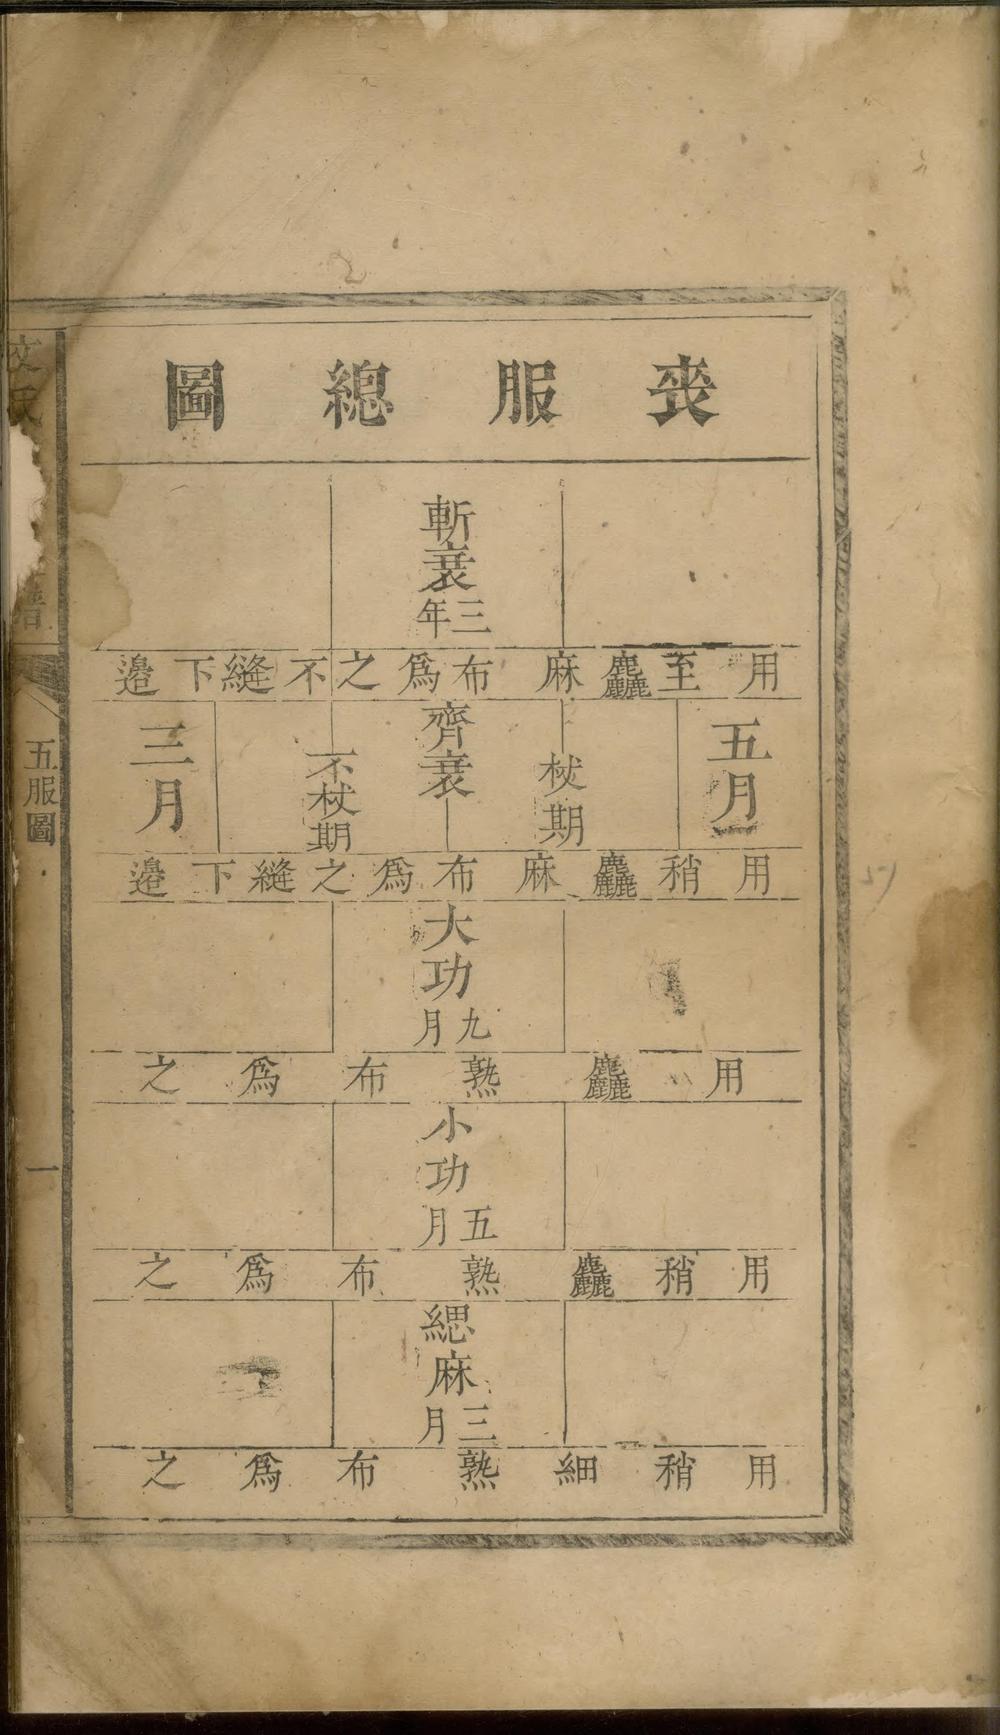 喪服總圖
斬衰三年
用至麤麻布爲之不縫下邊
五月
杖期
齊衰
不杖期
三月
用稍麤麻布爲之縫下邊
大功九月
用麤熟布爲之
小功五月
用稍麤熟布爲之
緦麻三月
用稍細熟布爲之
五服圖
一